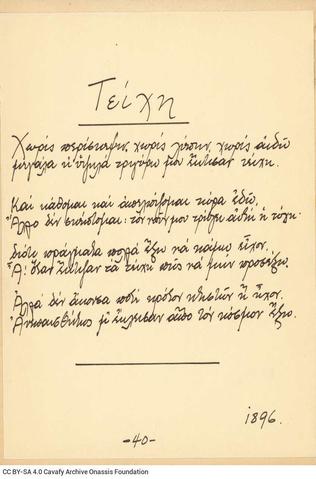 Τείχη
Χωρίς περίσκεψιν, χωρίς λύπην, χωρίς αιδώ
μεγάλα κ' υψηλά τριγύρω μου έκτισαν τείχη.
Και κάθομαι και απελπίζομαι τώρα εδώ.
Άλλο δεν σκέπτομαι: τον νουν μου τρώγει αυτή η τύχη·
διότι πράγματα πολλά έξω να κάμω είχον.
Ά! όταν έκτιζαν τα τείχη πώς να μην προσέξω.
Αλλά δεν άκουσα ποτέ κρότον κτιστών ή ήχον.
Ανεπαισθήτως μ' έκλεισαν από τον κόσμον έξω.
1896.
-40-
CC BY-SA 4.0 Cavafy Archive Onassis Foundation